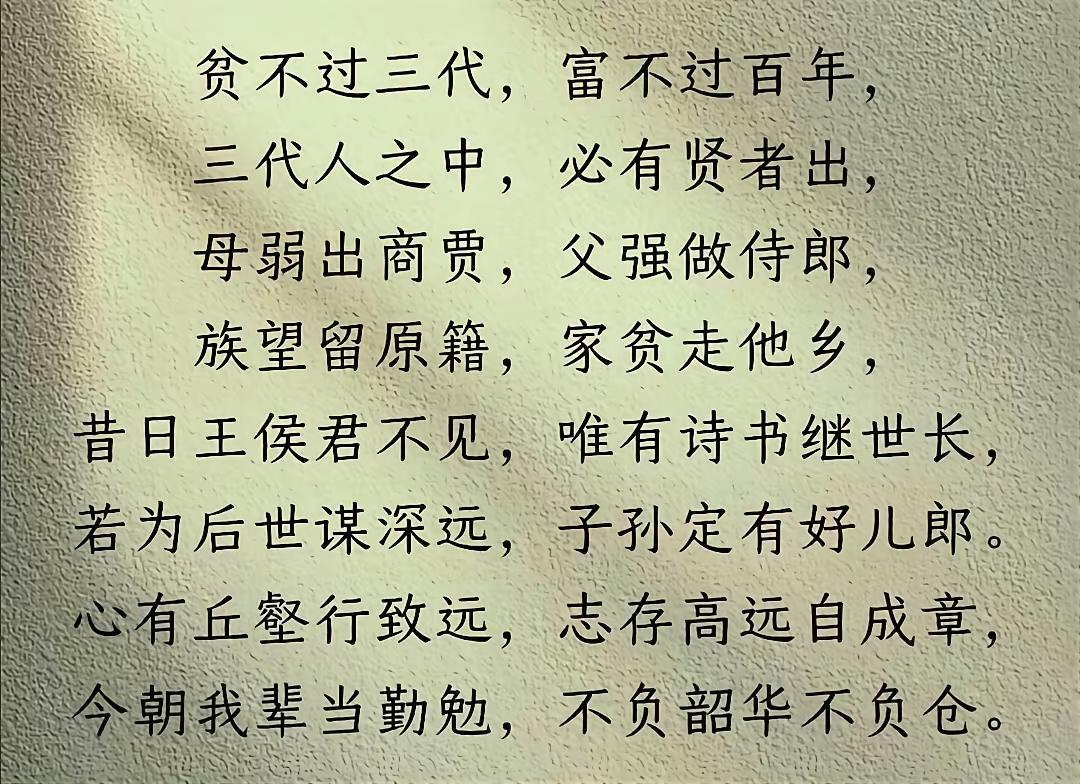 贫不过三代，富不过百年，
三代人之中，必有贤者出，
母弱出商贾，父强做侍郎，
族望留原籍，家贫走他乡，
昔日王侯君不见，唯有诗书继世长，
若为后世谋深远，子孙定有好儿郎。
心有丘壑行致远，志存高远自成章，
今朝我辈当勤勉，不负韶华不负仓。